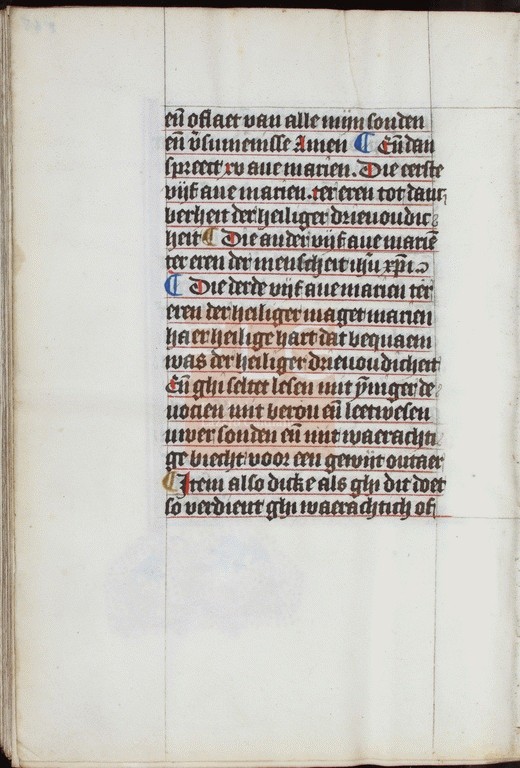 eñ oflaet van alle mijn sonden
eñ v̄sumenisse Amen Eñ dan
spreect xv aue marien. Die eerste
vijf aue marien. ter eren tot danc
berheit der heiliger drieuoudic
heit Die ander vijf aue mariē
ter eren der menscheit ihū xp̄i.
Die derde vijf aue marien ter
eren der heiliger maget marien
haer heilige hart dat bequaem
was der heiliger drieuoudicheit
Eñ ghi seltet lesen mit ȳniger de
uocien mit berou eñ leetwesen
uwer sonden eñ mit waerachti
ge biecht voor een gewijt outaer
Item also dicke als ghi dit doet
so verdient ghi waerachtich of